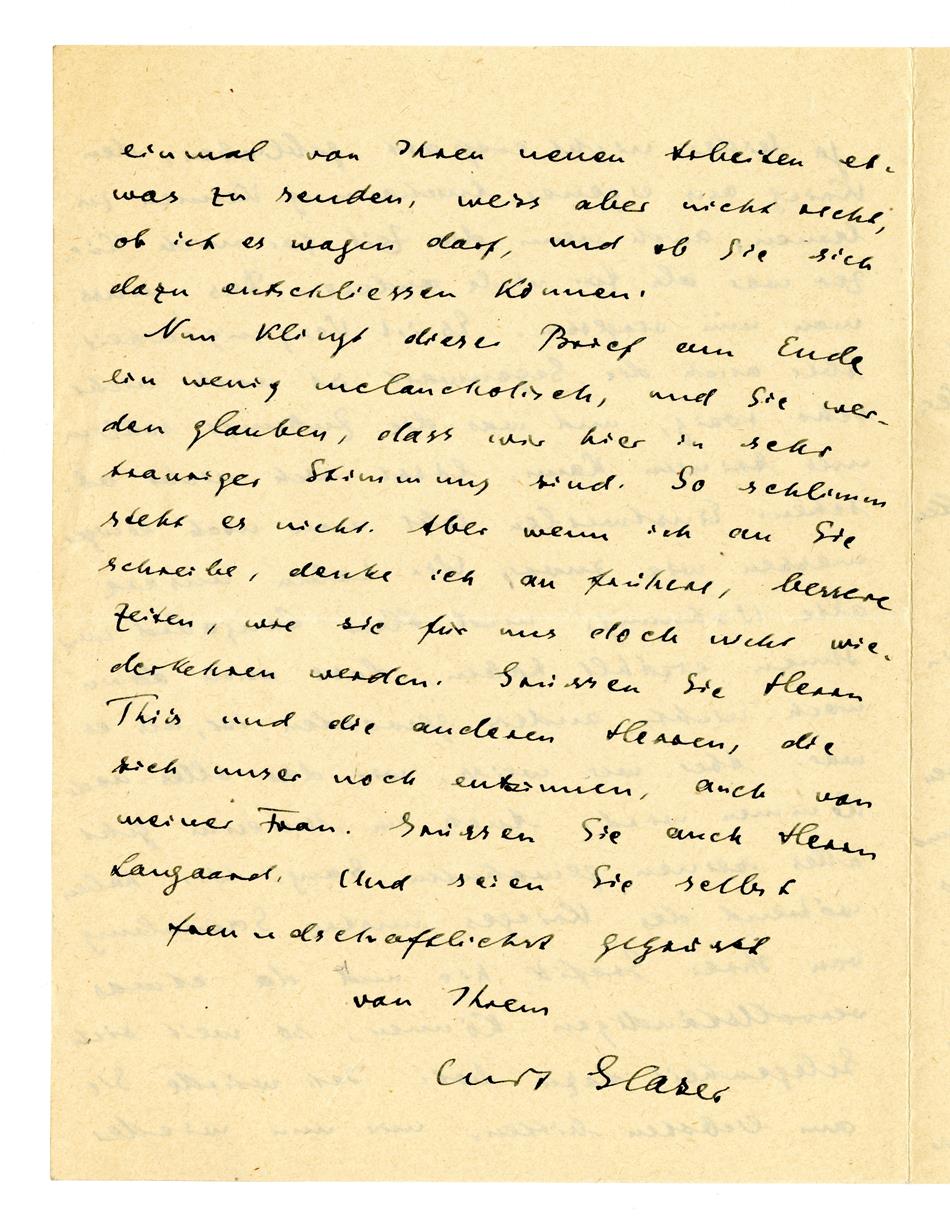 einmal von Ihren neuen Arbeiten et-
was zu senden, weiss aber nicht recht,
ob ich es wagen darf, und ob Sie sich
dazu entschliessen können.
Nun klingt dieser Brief am Ende
ein wenig melancholisch, und Sie wer-
den glauben, dass wir hier in sehr
trauriger Stimmung sind. So schlimm
steht es nicht. Aber wenn ich an Sie
schreibe, denke ich an frühere, bessere
Zeiten, wie sie für uns doch nicht wie-
derkehren werden. Grüssen Sie Herrn
Thiis und die anderen Herren, die
sich unser noch entsinnen, auch von
meiner Frau. Grüssen Sie auch Herrn
Langaard. Und seien Sie selbst
freundschaftlichst gegrüsst
von Ihrem
Curt Glaser